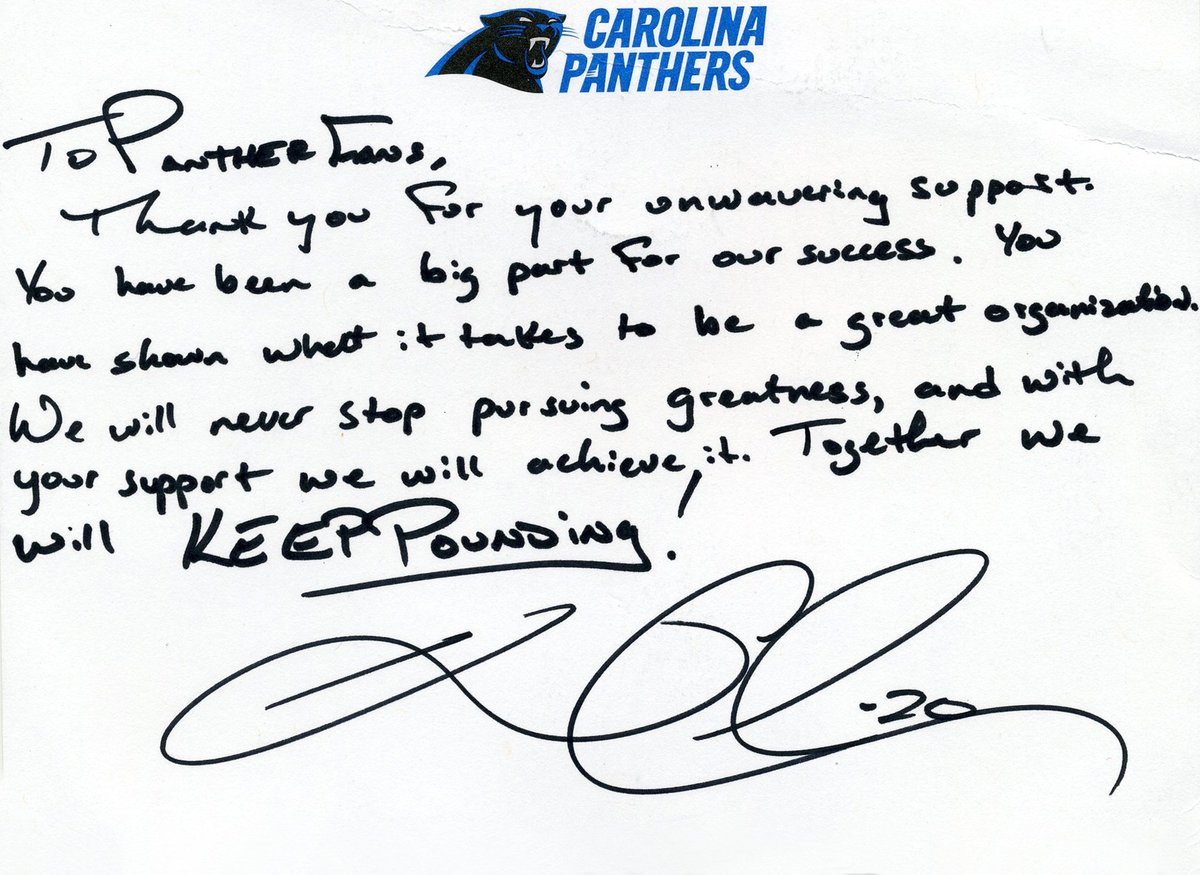 CAROLINA
PANTHERS
To PANTHER Fans,
Thank you For your unwavering support.
You have been a big part For our success. You
have shown what it takes to be a great organization.
We will never stop pursuing greatness, and with
your support we will achieve it. Together we
will KEEP POUNDING!
-20